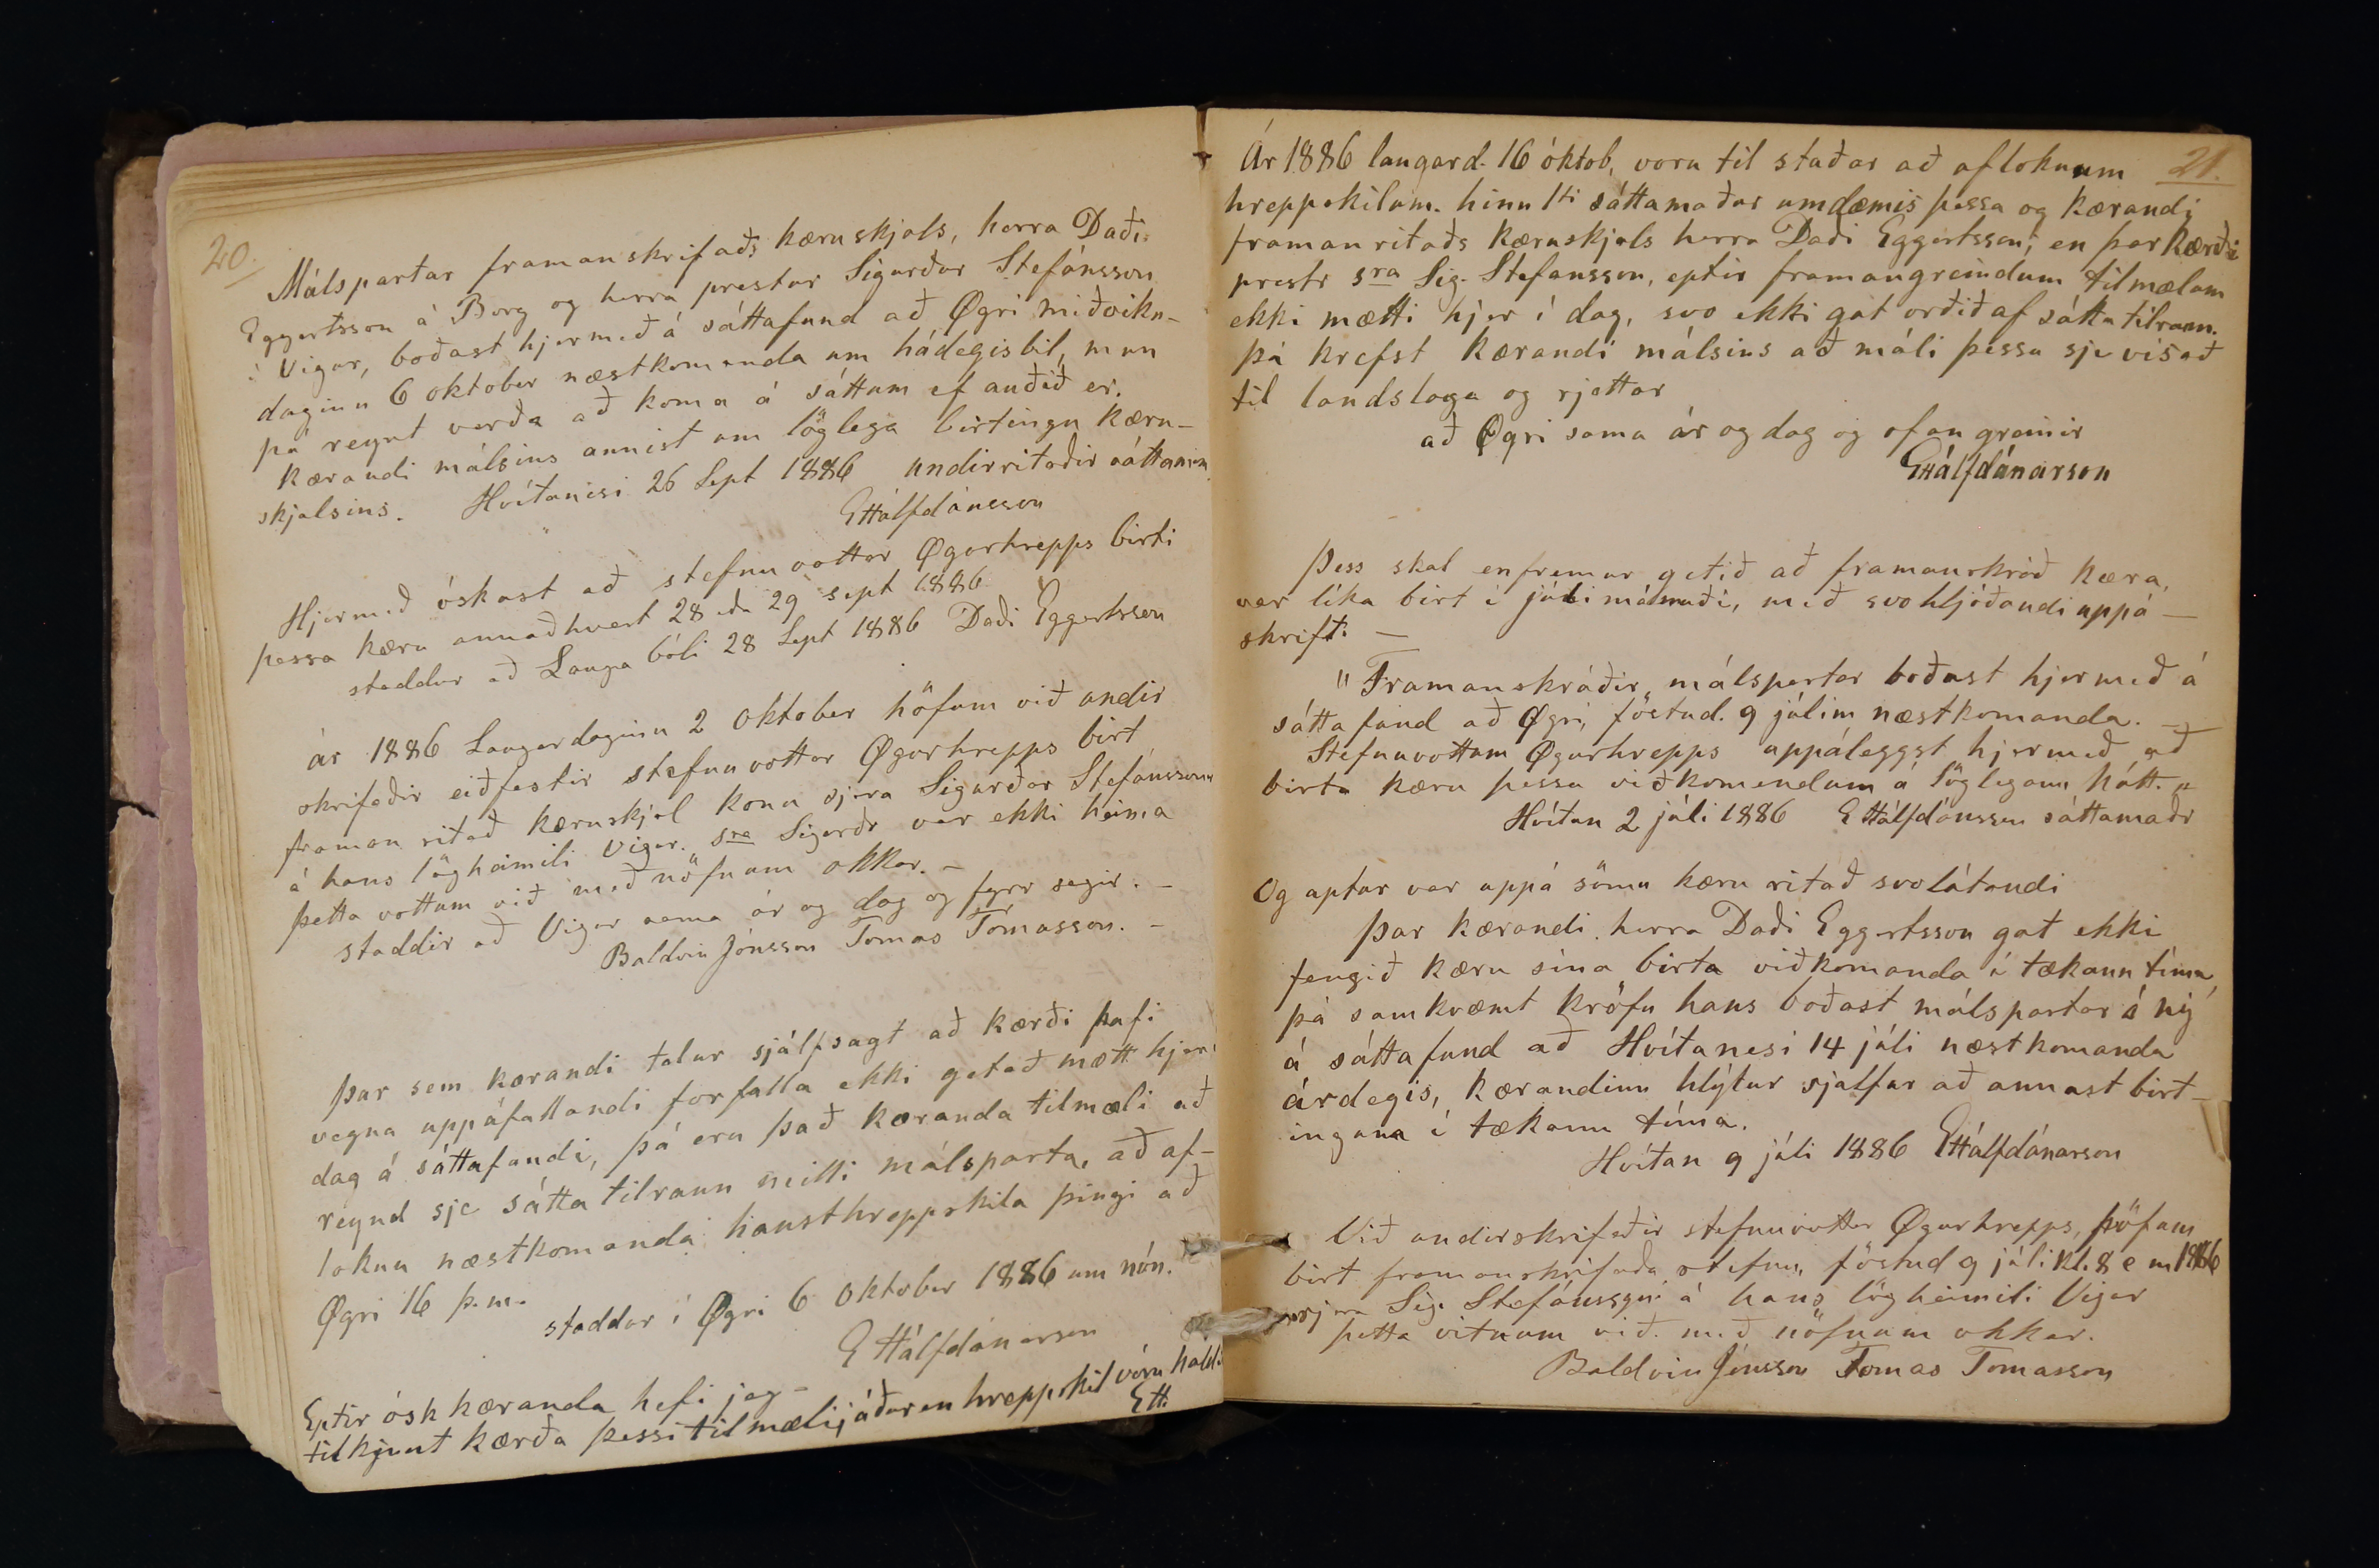 20.
Málspartar framanskrifaðs kæruskjals, herra Daði
Eggertsson á Borg og herra prestur Sigurður Stefánsson
í Vigur, boðast hjermeð á sáttafund að Øgri miðviku-
daginn 6 oktober næstkomanda um hádegisbil, mun
þá reynt verða að koma á sáttum ef auðið er.
Kærandi málsins annist um löglega birtingu kæru-
skjalsins. Hvítanesi 26 Sept 1886 undirritaðir sáttamenn
EHálfdánsson
Hjermeð óskast að stefnuvottar Øgurhrepps birti
þessa kæru annaðhvert 28 eða 29 sept 1886
staddur að Laugabóli 28 Sept 1886 Daði Eggertsson
ár 1886 Laugardaginn 2 Oktober höfum við undir
skrifaðir eiðfestir stefnuvottar Øgurhrepps birt
framan ritað kæruskjal konu sjera Sigurðar Stefánssonar
á hans lögheimili Vigur. sra Sigurðr var ekki heima
þetta vottum við með nöfnum okkar. –
staddir að Vigur sama ár og dag og fyrr segir. –
Baldvin Jónsson Tomas Tomasson. –
Þar sem kærandi telur sjálfsagt að kærði hafi
vegna uppáfallandi forfalla ekki getað mætt hjer í
dag á sáttafundi, þá eru það kæranda tilmæli að
reynd sje sátta tilraun milli málsparta, að af-
loknu næstkomandi hausthreppskila þingi að
Øgri 16 þ.m.
staddur í Øgri 6 Oktober 1886 um nón.
EHálfdánarson
Eptir ósk kæranda hefi jeg –
tilkynnt kærða þessi tilmæli, áður en hreppskil vóru haldi
EH.
21.
Ár 1886 laugard. 16 óktob, voru til staðar að afloknum
hreppskilum. hinn 1ti sáttamaður umdæmis þessa og kærandi
framanritaðs kæruskjals herra Daði Eggertsson; en þar kærði
prestr sra Sig. Stefansson, eptir framangreindum tilmælum
ekki mætti hjer í dag, svo ekki gat orðið af sátta tilraun.
þá krefst kærandi málsins að máli þessu sje vísað
til landslaga og rjettar
að Øgri sama ár og dag og ofan greinir
EHálfdánarson
Þess skal enfremur getið að framanskráð kæra,
var líka birt í júlímánuði, með svohljóðandi uppá –
skrift: –
"Framanskráðir málspartar boðast hjermeð á
sáttafund að Øgri, föstud. 9 júlím næstkomanda. –
Stefnuvottum Øgurhrepps uppáleggst hjermeð að
birta kæru þessa viðkomendum á löglegann hátt."
Hvítan 2 júli 1886 EHálfdánsson sáttamaðr
Og aptur var uppá sömu kæru ritað svolátandi
Þar kærandi herra Daði Eggertsson gat ekki
fengið kæru sína birta viðkomanda í tækann tíma,
þá samkvæmt kröfu hans boðast málspartar á ný
á sáttafund að Hvítanesi 14 júli næstkomanda
árdegis, kærandinn hlýtur sjalfur að annast birt-
inguna í tækann tíma.
Hvítan 9 júli 1886 EHálfdánarson
Við undirskrifaðir stefnuvottar Øgurhrepps, höfum
birt framanskrifaða stefnu, föstud 9 júli kl. 8 e m 1886
sjera Sig. Stefánssyni á hans lögheimili Vigur
þetta vitnum við með nöfnum okkar.
Baldvin Jónsson Tomas Tomasson